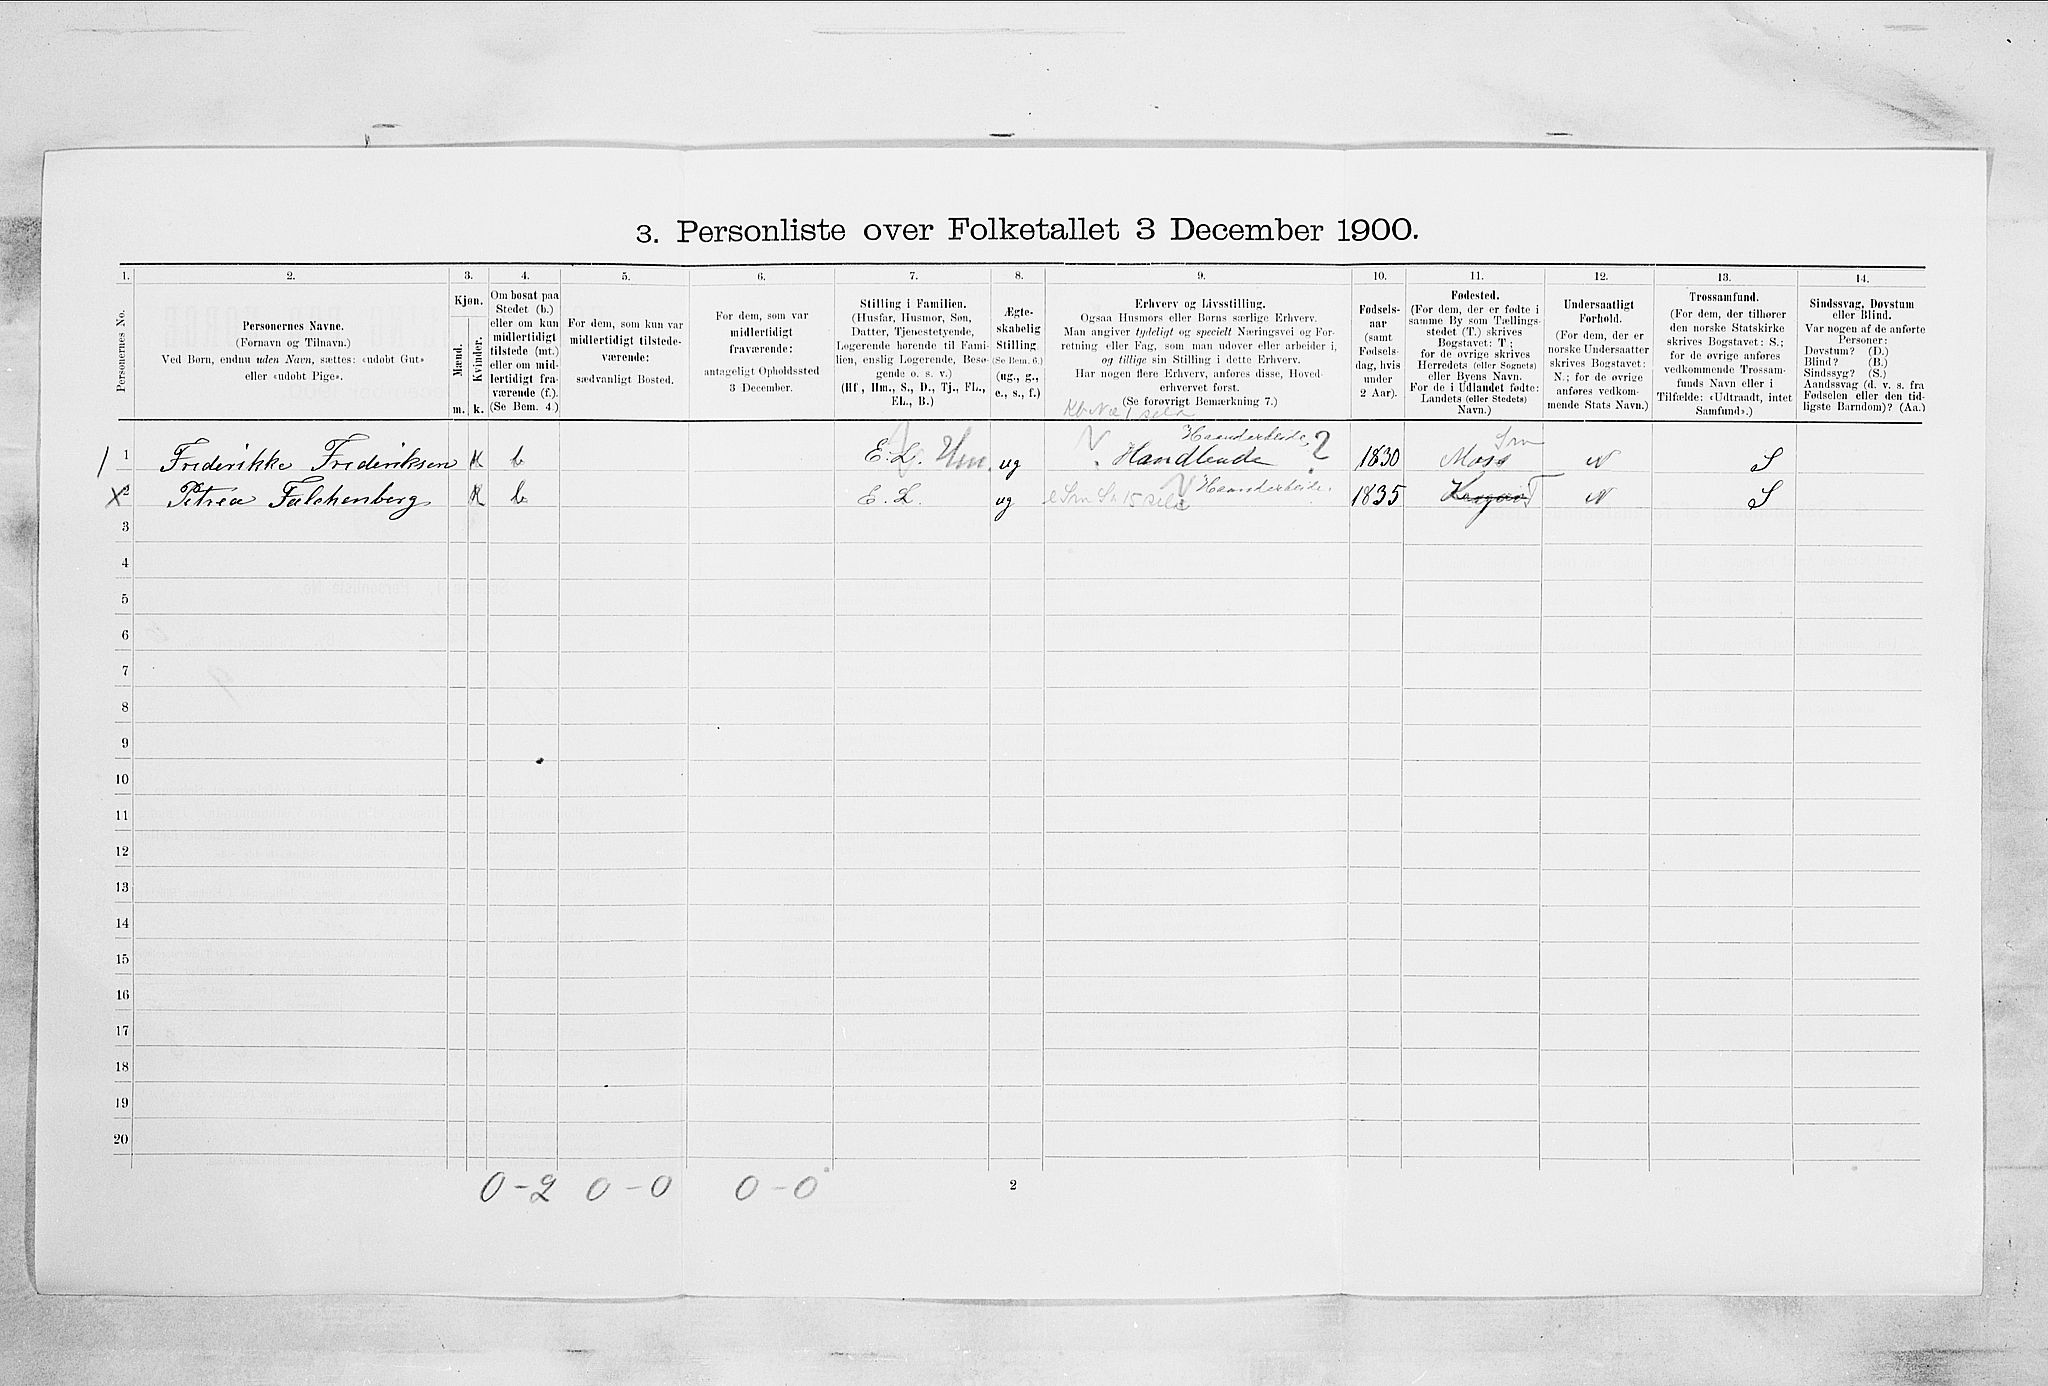 3. Personliste over Folketallet 3 December 1900.
1. 2. 3. 4. 5. 6. 7. 8. 9. 10. 11. 12. 13. 14.
Personernes No.
Personernes Navne.
(Fornavn og Tilnavn.)
Ved Børn, endnu uden Navn, sættes: «udøbt Gut»
eller «udøbt Pige».
Kjøn.
Mænd.
Kvinder.
m. k.
Om bosat paa
Stedet (b.)
eller om kun
midlertidigt
tilstede (mt.)
eller om mid-
lertidigt fra-
værende (f.).
(Se Bem. 4.)
For dem, som kun var
midlertidigt tilstede-
værende:
sædvanligt Bosted.
For dem, som var
midlertidigt
fraværende:
antageligt Opholdssted
3 December.
Stilling i Familien.
(Husfar, Husmor, Søn,
Datter, Tjenestetyende,
Logerende hørende til Fami-
lien, enslig Logerende, Besø-
gende o. s. v.)
(Hf., Hm., S., D., Tj., FL.,
EL., B.)
Ægte-
skabelig
Stilling.
(Se Bem. 6.)
(ug., g.,
e., s., f.)
Erhverv og Livsstilling.
Ogsaa Husmors eller Børns særlige Erhverv.
Man angiver tydeligt og specielt Næringsvei og For-
retning eller Fag, som man udøver eller arbeider i,
og tillige sin Stilling i dette Erhverv.
Har nogen flere Erhverv, anføres disse, Hoved-
erhvervet først.
(Se forøvrigt Bemærkning 7.)
Fødsels-
aar
(samt
Fødsels-
dag, hvis
under
2 Aar).
Fødested.
(For dem, der er fødte i
samme By som Tællings-
stedet (T.) skrives
Bogstavet: T.;
for de øvrige skrives
Herredets (eller Sognets)
eller Byens Navn.
For de i Udlandet fødte:
Landets (eller Stedets)
Navn.)
Undersaatligt
Forhold.
(For dem, der er
norske Undersaatter
skrives Bogstavet:
N.; for de øvrige
anføres vedkom-
mende Stats Navn.)
Trossamfund.
(For dem, der tilhører
den norske Statskirke
skrives Bogstavet: S.;
for de øvrige anføres
vedkommende Trossam-
funds Navn eller i
Tilfælde: «Udtraadt, intet
Samfund».)
Sindssvag, Døvstum
eller Blind.
Var nogen af de anførte
Personer:
Døvstum? (D.)
Blind? (B.)
Sindssyg? (S.)
Aandssvag (d. v. s. fra
Fødselen eller den tid-
ligste Barndom)? (Aa.)
Haandarbeide Sm
1 Frederikke Frederiksen K b E. L. Hm. ug Handlende ? 1830 Moss N S
X 2 Petrea Falchenberg K b E. L. ug Haandarbeide. 1835 T N S
3
4
5
6
7
8
9
10
11
12
13
14
15
16
17
18
19
20
0 - 2 0 - 0 0 - 0 2